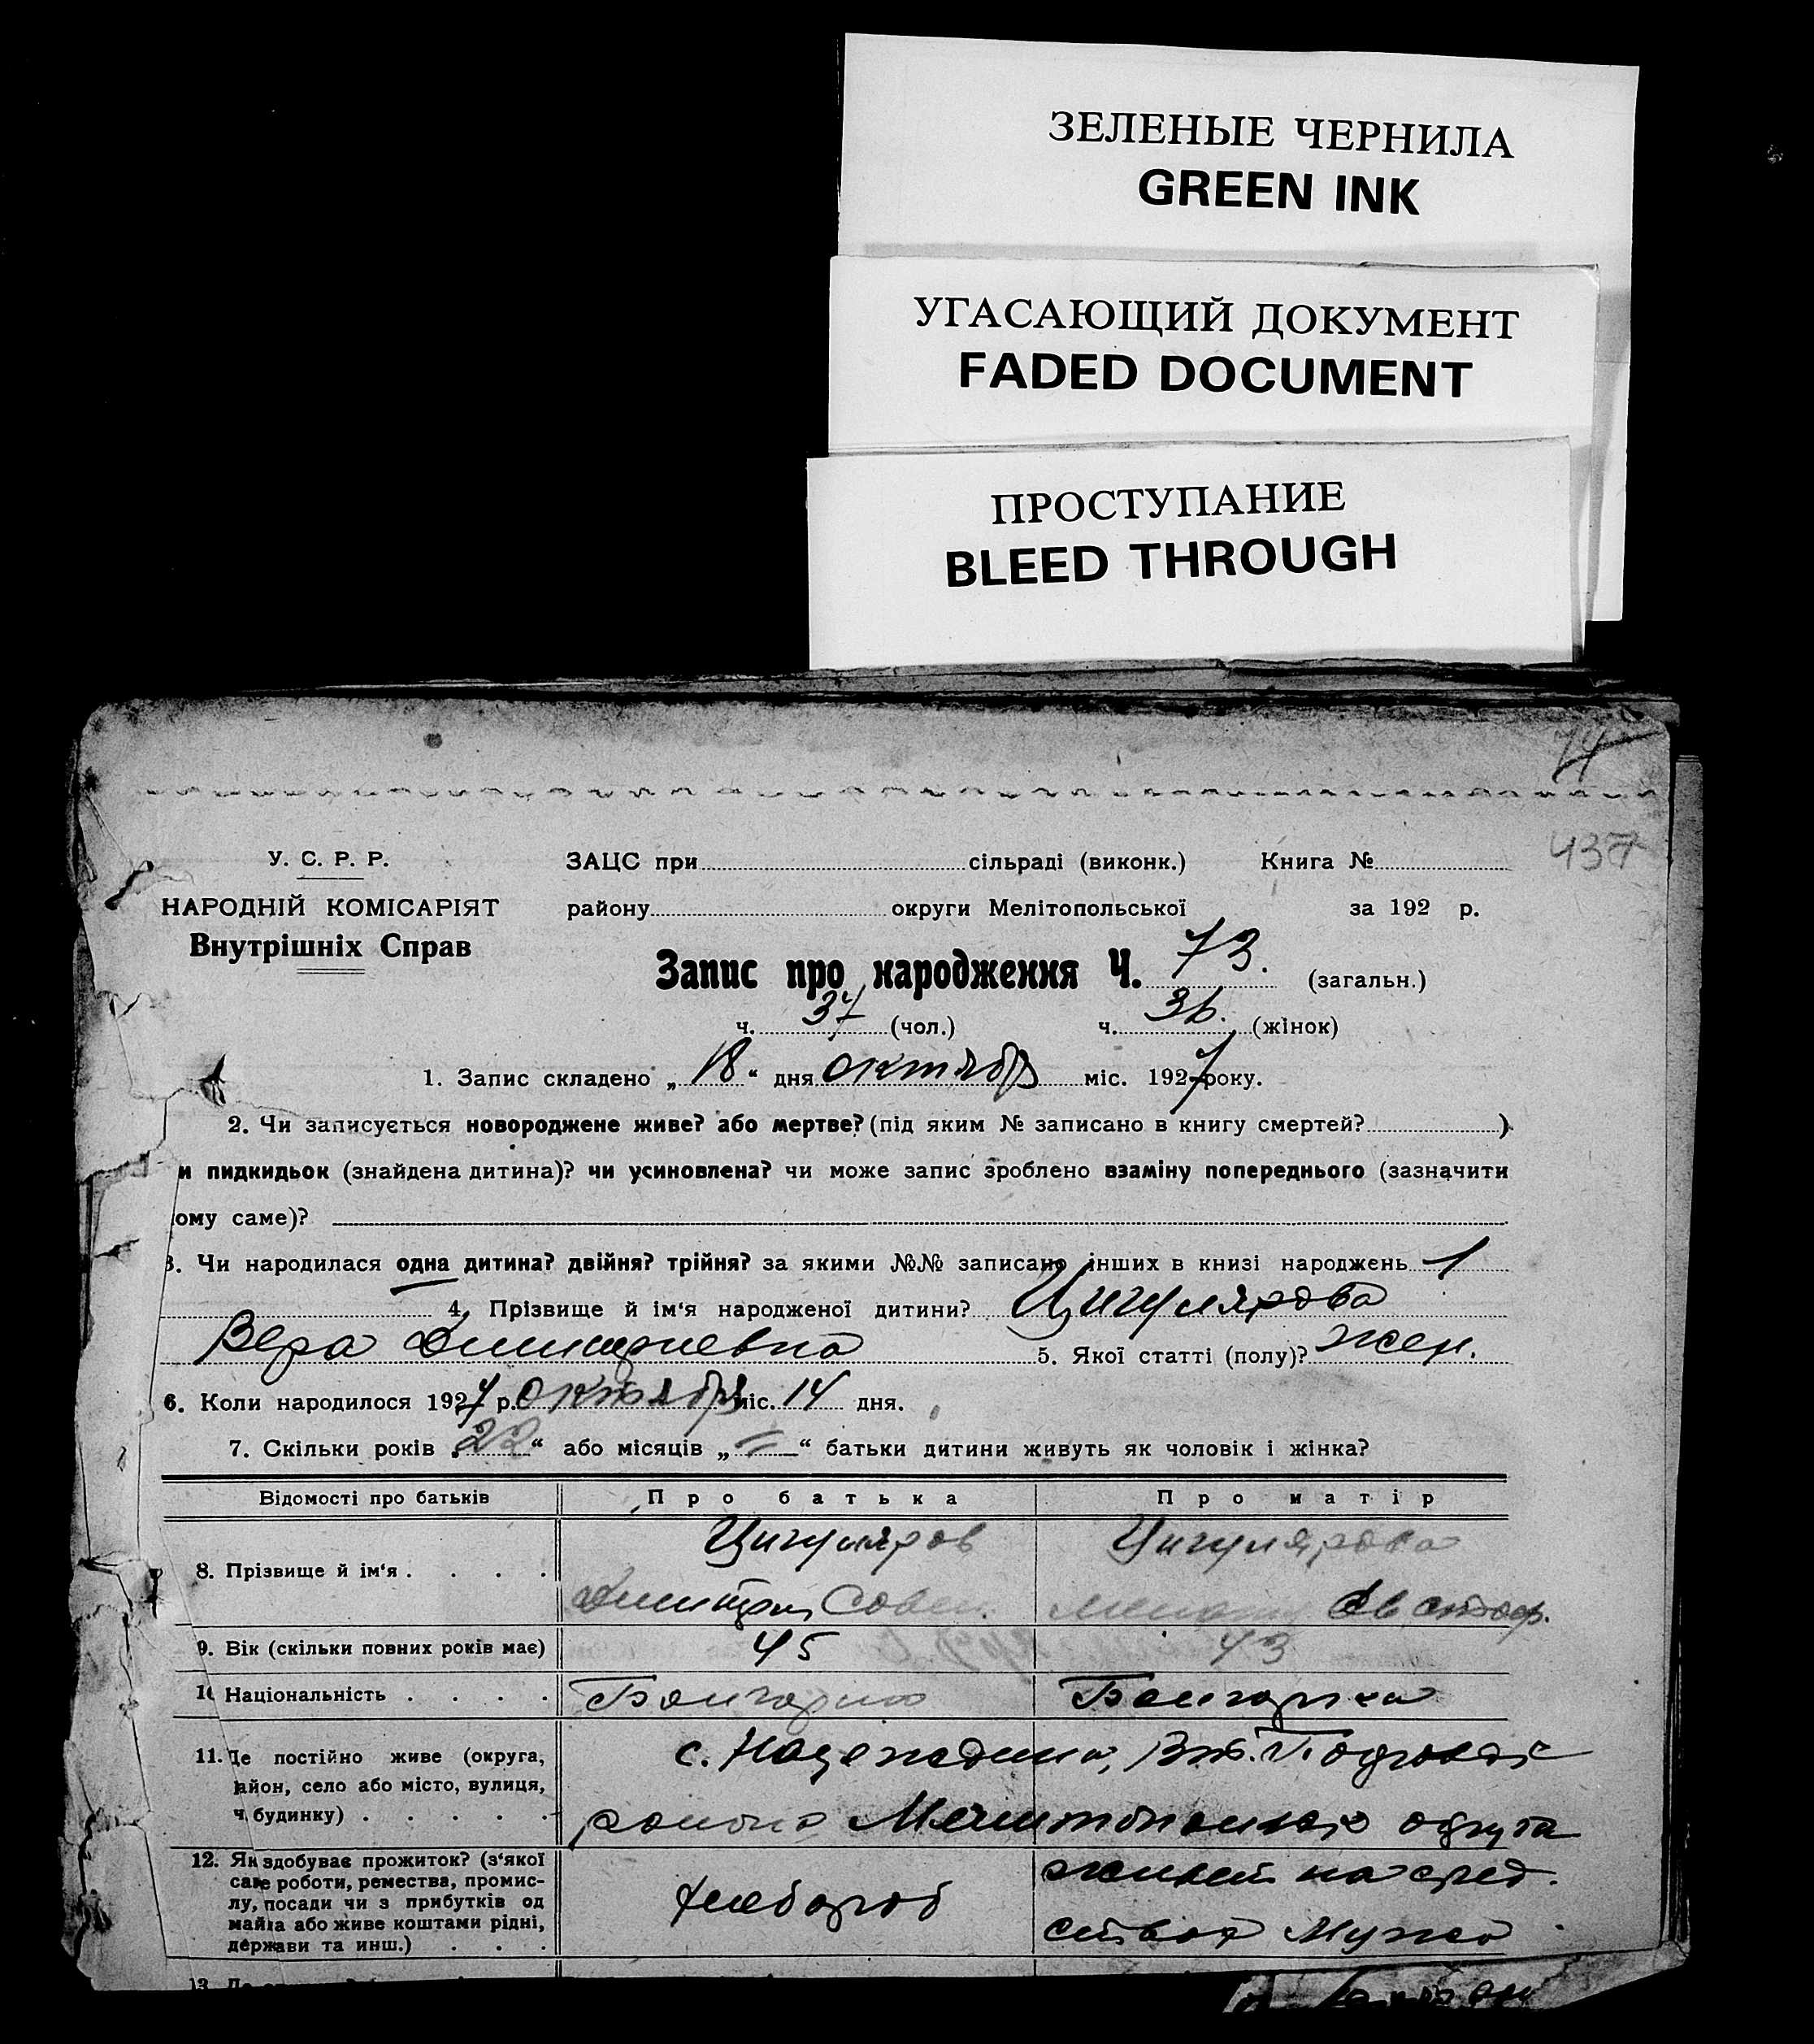 ЗЕЛЕНЫЕ ЧЕРНИЛА
GREEN INK
УГАСАЮЩИЙ ДОКУМЕНТ
FADED DOCUMENT
ПРОСТУПАНИЕ
BLEED THROUGH
74
437
У. С. Р. Р. ЗАЦС при сільраді (виконк.) Книга №
НАРОДНІЙ КОМІСАРІЯТ району округи Мелітопольської за 192 р.
Внутрішніх Справ
Запис про народження Ч. 73. (загальн.)
ч. 37 (чол.) ч. 36. (жінок)
1. Запис складено „18“ дня октября міс. 1927 року.
2. Чи записується новороджене живе? або мертве? (під яким № записано в книгу смертей? )
и пидкидьок (знайдена дитина)? чи усиновлена? чи може запис зроблено взаміну попереднього (зазначити
ому саме)?
3. Чи народилася одна дитина? двійня? трійня? за якими №№ записано інших в книзі народжень 1
4. Прізвище й ім‘я народженої дитини? Цигулярова
Вера Дмитриевна 5. Якої статті (полу)? жен.
6. Коли народилося 1927 р. октября міс. 14 дня.
7. Скільки років „22“ або місяців „=“ батьки дитини живуть як чоловік і жінка?
Відомості про батьків Про батька Про матір
8. Прізвище й ім‘я . . . . Цигуляров Цигулярова
Дмитрий Савел.
9. Вік (скільки повних років має) 45 43
10 Національність . . . . Болгарин Болгарка
11. Де постійно живе (округа, с. Надеждино,
район, село або місто, вулиця,
ч. будинку) . . . . . района Мелитопольского округа
12. Як здобуває прожиток? (з‘якої живет на сред.
саме роботи, ремества, промис-
лу, посади чи з прибутків од хлебороб
майна або живе коштами рідні, ства мужа
держави та инш.) . . .
13.